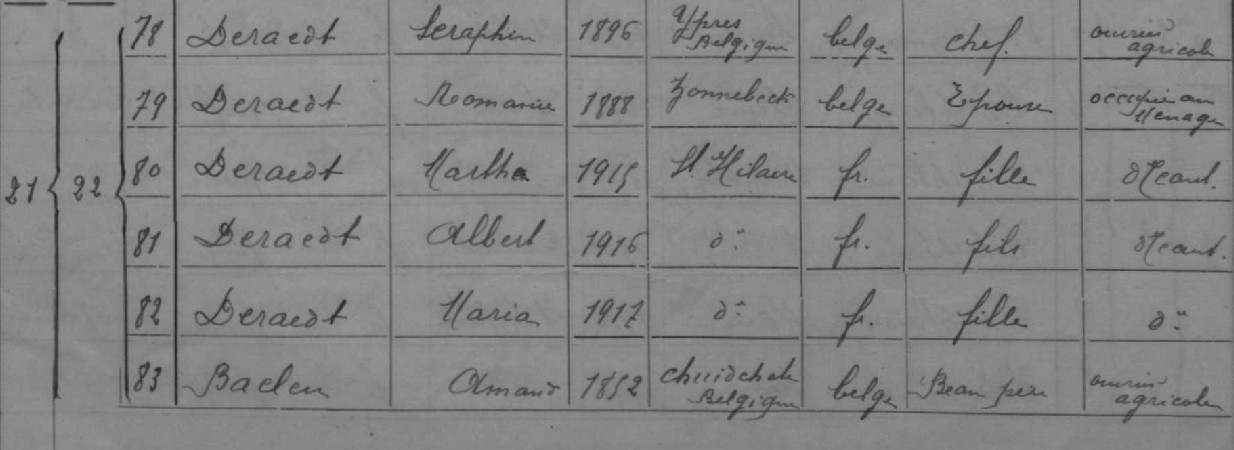 78 Deraedt Seraphin 1896 Ypres Belgique belge chef. ouvrier agricole
79 Deraedt Romanie 1888 Zonnebeck belge Epouse occupée au Ménage
21 22 80 Deraedt Martha 1915 St. Hilaire fr. fille néant.
81 Deraedt Albert 1916 d° fr. fils néant.
82 Deraedt Maria 1917 d° fr. fille d°
83 Baelen Amand 1852 Belgique belge Beau père ouvrier agricole